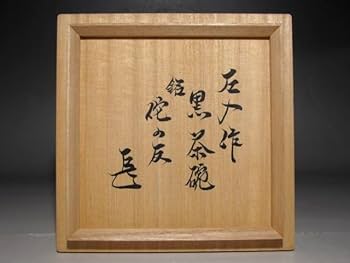 左入作
黒茶碗
銘
侘の友